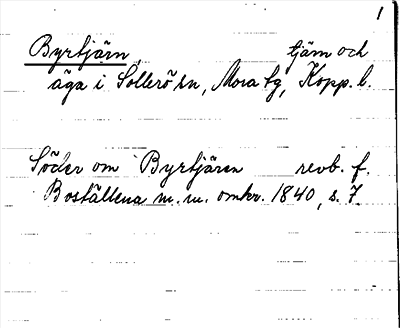 1
Byrtjärn, tjärn och
äga i Sollerö sn, Mora tg, Kopp. l.
Söder om Byrtjären revb. f.
Boställena m. m. omkr. 1840, s. 7.